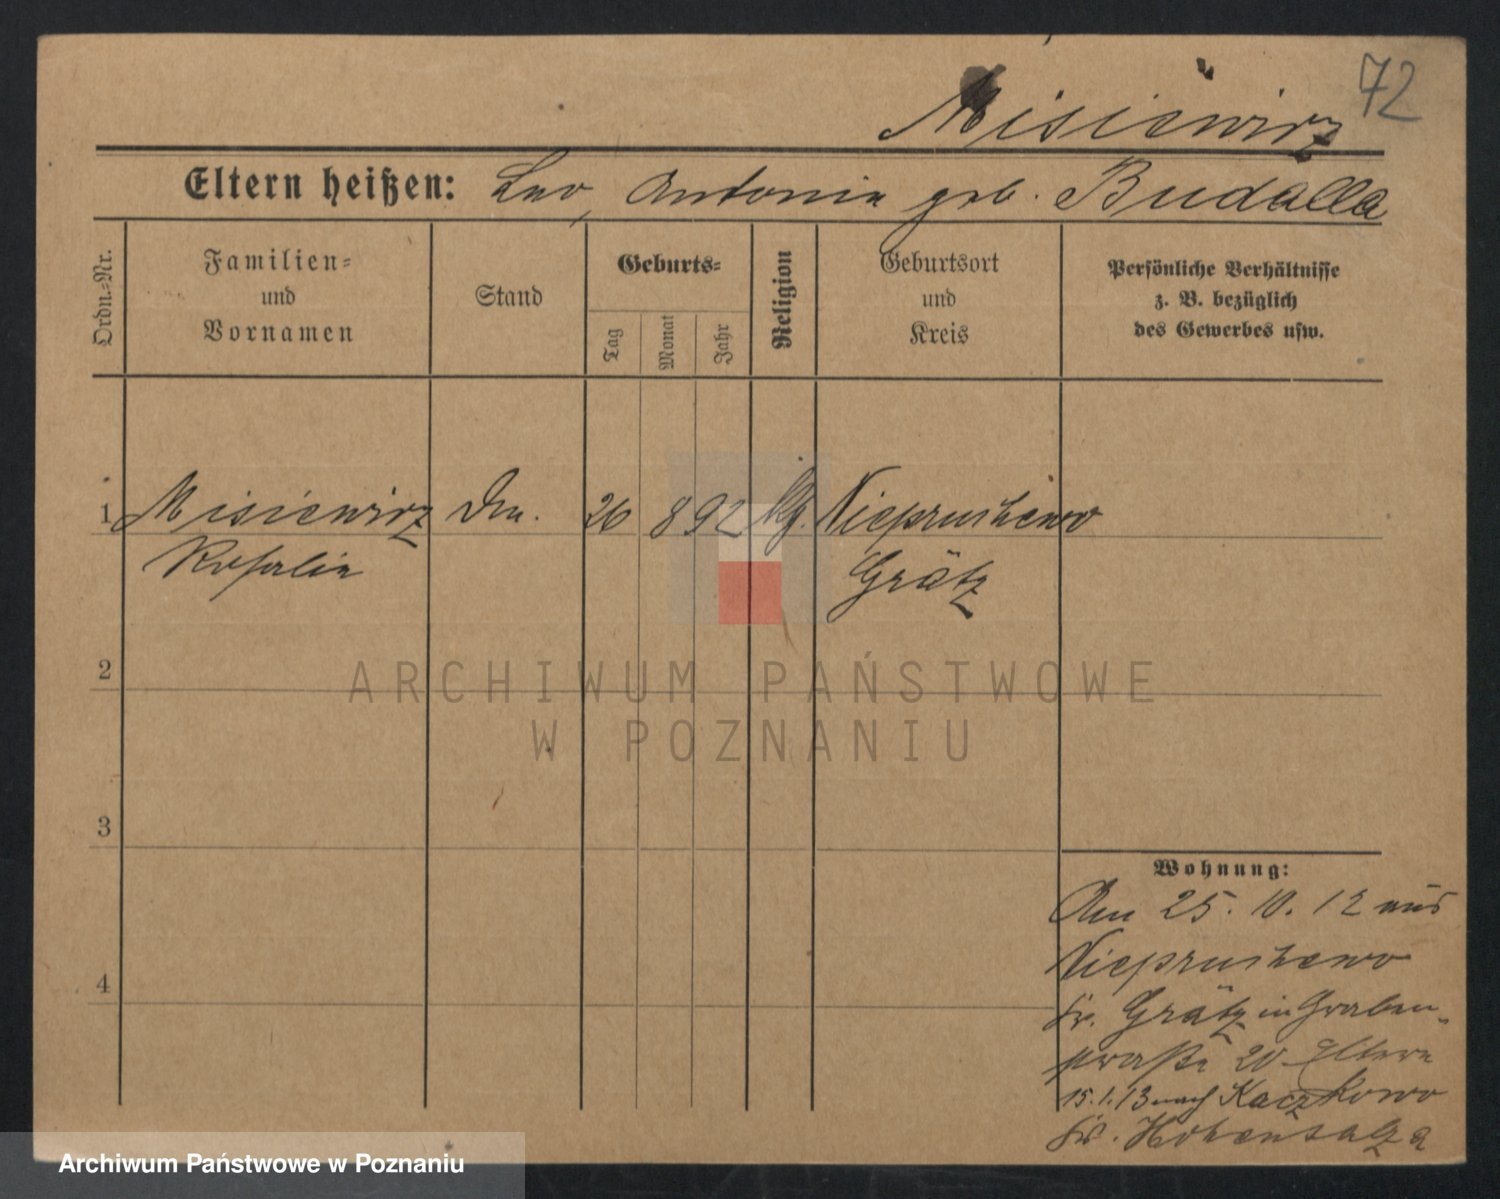 72
Misiewicz
Eltern heißen: Leo, Antonie geb. Budalla
Ordn.-Nr.
Familien-
und
Vornamen
Stand
Geburts-
Tag
Monat
Jahr
Religion
Geburtsort
und
Kreis
Persönliche Verhältnisse
z. B. bezüglich
des Gewerbes usw.
1 Misiewicz 26 8 92 Niepruschewo
Rosalie Grätz
2
3
4
Wohnung:
Am 25. 10. 12 aus
Niepruschewo
Kr. Grätz in Graben-
straße 20 Eltern
15.1.13 nach Kaczkowo
Kr. Hohensalza
ARCHIWUM PAŃSTWOWE
W POZNANIU
Archiwum Państwowe w Poznaniu